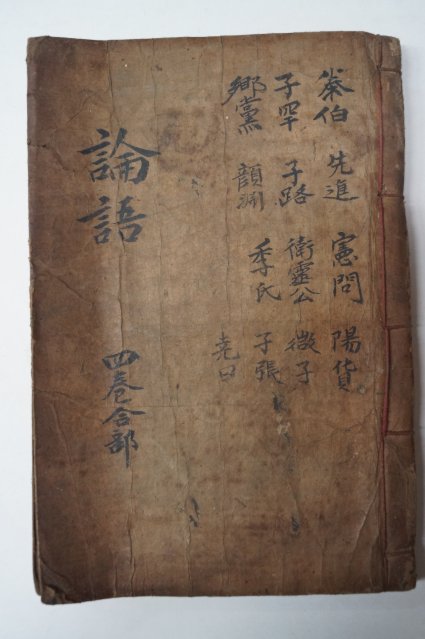 泰伯 先進 憲問 陽貨
子罕 子路 衛靈公 微子
鄕黨 顔渊 季氏 子張
堯曰
論語
四卷合部